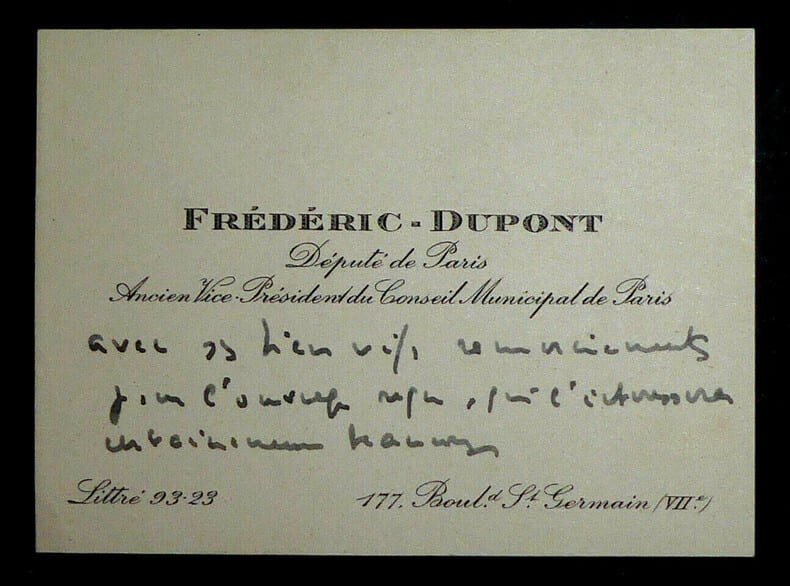 FRÉDÉRIC-DUPONT
Député de Paris
Ancien Vice-Président du Conseil Municipal de Paris
avec ses bien vifs remerciements
pour l'ouvrage reçu, qui l'intéressera
certainement beaucoup
Littré 93-23 177. Boul.d St. Germain (VIIe.)